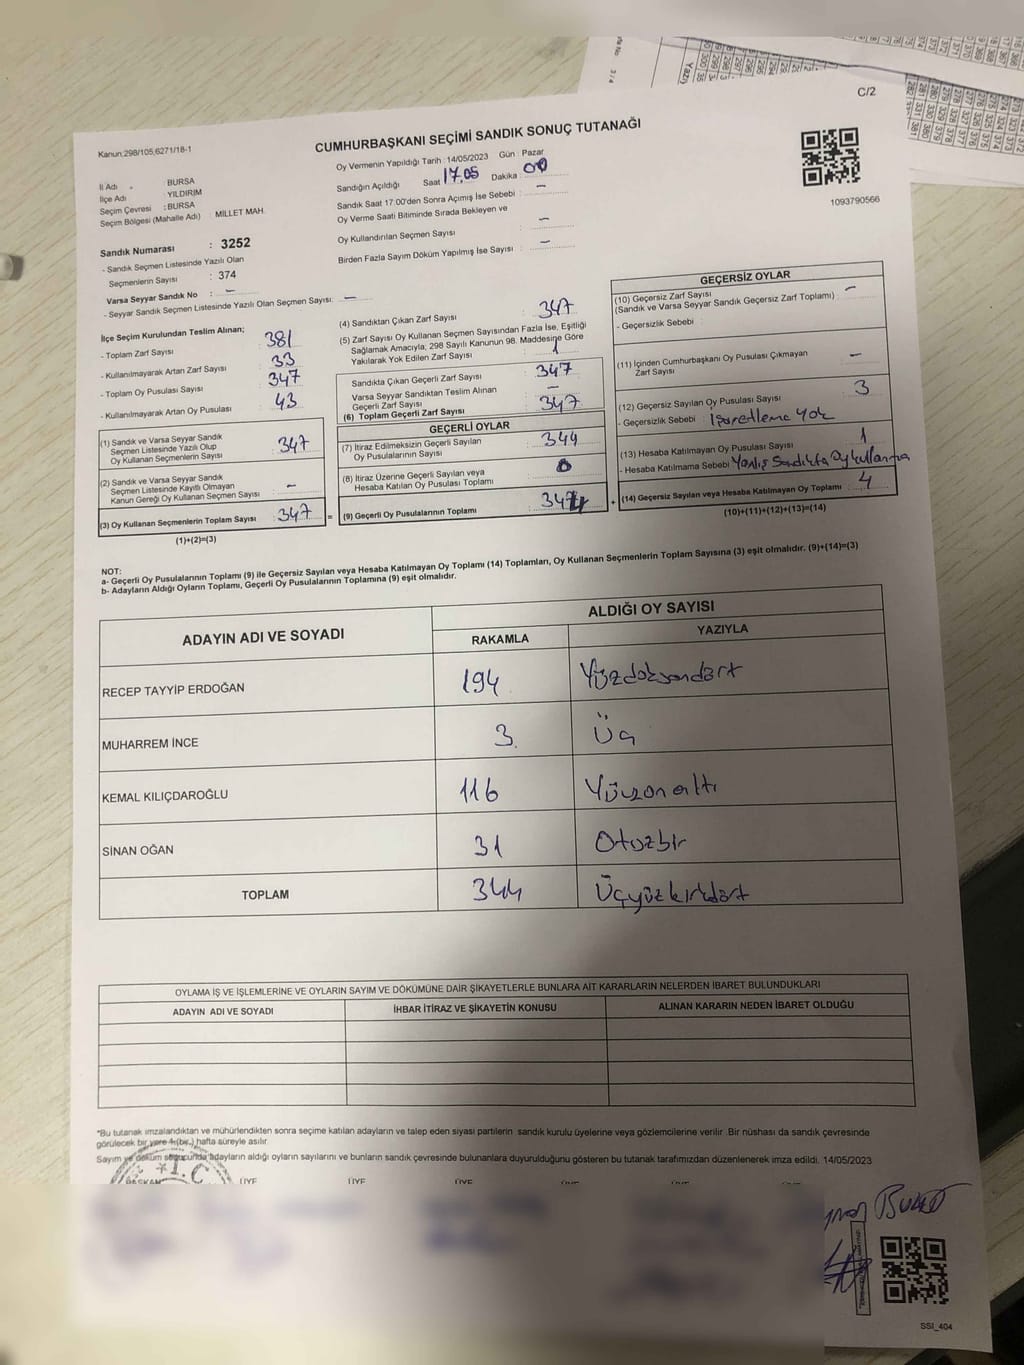 C/2
Kanun:298/105,6271/18-1
CUMHURBAŞKANI SEÇİMİ SANDIK SONUÇ TUTANAĞI
İl Adı : BURSA
İlçe Adı : YILDIRIM
Seçim Çevresi : BURSA
Seçim Bölgesi (Mahalle Adı) : MİLLET MAH.
Oy Vermenin Yapıldığı Tarih : 14/05/2023 Gün : Pazar
Sandığın Açıldığı Saat 17.05 Dakika : 00
Sandık Saat 17:00'den Sonra Açımış İse Sebebi : –
Oy Verme Saati Bitiminde Sırada Bekleyen ve
Oy Kullandırılan Seçmen Sayısı : –
Birden Fazla Sayım Döküm Yapılmış İse Sayısı : –
1093790566
Sandık Numarası : 3252
- Sandık Seçmen Listesinde Yazılı Olan
Seçmenlerin Sayısı : 374
Varsa Seyyar Sandık No : –
- Seyyar Sandık Seçmen Listesinde Yazılı Olan Seçmen Sayısı: –
İlçe Seçim Kurulundan Teslim Alınan;
- Toplam Zarf Sayısı : 381
- Kullanılmayarak Artan Zarf Sayısı : 33
- Toplam Oy Pusulası Sayısı : 347
- Kullanılmayarak Artan Oy Pusulası : 43
(1) Sandık ve Varsa Seyyar Sandık
Seçmen Listesinde Yazılı Olup
Oy Kullanan Seçmenlerin Sayısı : 347
(2) Sandık ve Varsa Seyyar Sandık
Seçmen Listesinde Kayıtlı Olmayan
Kanun Gereği Oy Kullanan Seçmen Sayısı : –
(3) Oy Kullanan Seçmenlerin Toplam Sayısı : 347
(1)+(2)=(3)
(4) Sandıktan Çıkan Zarf Sayısı : 347
(5) Zarf Sayısı Oy Kullanan Seçmen Sayısından Fazla İse, Eşitliği
Sağlamak Amacıyla, 298 Sayılı Kanunun 98. Maddesine Göre
Yakılarak Yok Edilen Zarf Sayısı : 1
Sandıkta Çıkan Geçerli Zarf Sayısı : 347
Varsa Seyyar Sandıktan Teslim Alınan
Geçerli Zarf Sayısı : –
(6) Toplam Geçerli Zarf Sayısı : 347
GEÇERLİ OYLAR
(7) İtiraz Edilmeksizin Geçerli Sayılan
Oy Pusulalarının Sayısı : 344
(8) İtiraz Üzerine Geçerli Sayılan veya
Hesaba Katılan Oy Pusulası Toplamı : 0
(9) Geçerli Oy Pusulalarının Toplamı : 344
GEÇERSİZ OYLAR
(10) Geçersiz Zarf Sayısı : –
(Sandık ve Varsa Seyyar Sandık Geçersiz Zarf Toplamı)
- Geçersizlik Sebebi :
(11) İçinden Cumhurbaşkanı Oy Pusulası Çıkmayan
Zarf Sayısı : –
(12) Geçersiz Sayılan Oy Pusulası Sayısı : 3
- Geçersizlik Sebebi : İşaretleme Yok
(13) Hesaba Katılmayan Oy Pusulası Sayısı : 1
- Hesaba Katılmama Sebebi : Yanlış Sandıkta Oy kullanma
(14) Geçersiz Sayılan veya Hesaba Katılmayan Oy Toplamı : 4
(10)+(11)+(12)+(13)=(14)
NOT:
a- Geçerli Oy Pusulalarının Toplamı (9) ile Geçersiz Sayılan veya Hesaba Katılmayan Oy Toplamı (14) Toplamları, Oy Kullanan Seçmenlerin Toplam Sayısına (3) eşit olmalıdır. (9)+(14)=(3)
b- Adayların Aldığı Oyların Toplamı, Geçerli Oy Pusulalarının Toplamına (9) eşit olmalıdır.
ADAYIN ADI VE SOYADI ALDIĞI OY SAYISI
RAKAMLA YAZIYLA
RECEP TAYYİP ERDOĞAN 194 Yüzdoksandört
MUHARREM İNCE 3 Üç
KEMAL KILIÇDAROĞLU 116 Yüzonaltı
SİNAN OĞAN 31 Otuzbir
TOPLAM 344 Üçyüzkırkdört
OYLAMA İŞ VE İŞLEMLERİNE VE OYLARIN SAYIM VE DÖKÜMÜNE DAİR ŞİKAYETLERLE BUNLARA AİT KARARLARIN NELERDEN İBARET BULUNDUKLARI
ADAYIN ADI VE SOYADI İHBAR İTİRAZ VE ŞİKAYETİN KONUSU ALINAN KARARIN NEDEN İBARET OLDUĞU
*Bu tutanak imzalandıktan ve mühürlendikten sonra seçime katılan adayların ve talep eden siyasi partilerin sandık kurulu üyelerine veya gözlemcilerine verilir. Bir nüshası da sandık çevresinde
görülecek bir yere 1 (bir) hafta süreyle asılır.
Sayım ve döküm sonucunda adayların aldığı oyların sayılarını ve bunların sandık çevresinde bulunanlara duyurulduğunu gösteren bu tutanak tarafımızdan düzenlenerek imza edildi. 14/05/2023
T.C
BAŞKAN ÜYE ÜYE ÜYE ÜYE ÜYE
SSI_404